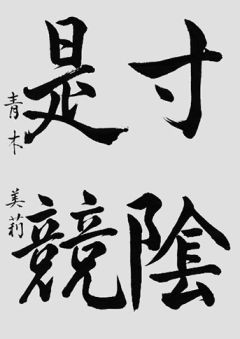 寸陰
是競
青木美莉